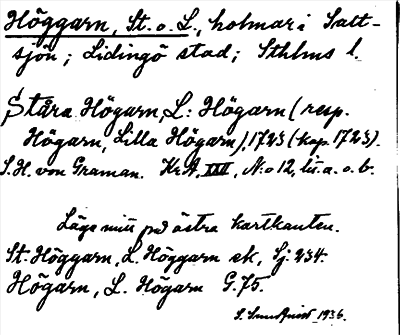 Höggarn, St. o. L., holmar i Salt-
sjön; Lidingö stad; Sthlms l.
Ståra Högarn, L: Högarn (resp.
Högarn, Lilla Högarn), 1723 (kop. 1723).
S. H. von Graman. Kr A, XXII, N:o 12, lit. a. o. b.
Läge mitt på östra kartkanten.
St. Höggarn, L. Höggarn ek, Sj. 234.
Högarn, L. Högarn G. 75.
1936.